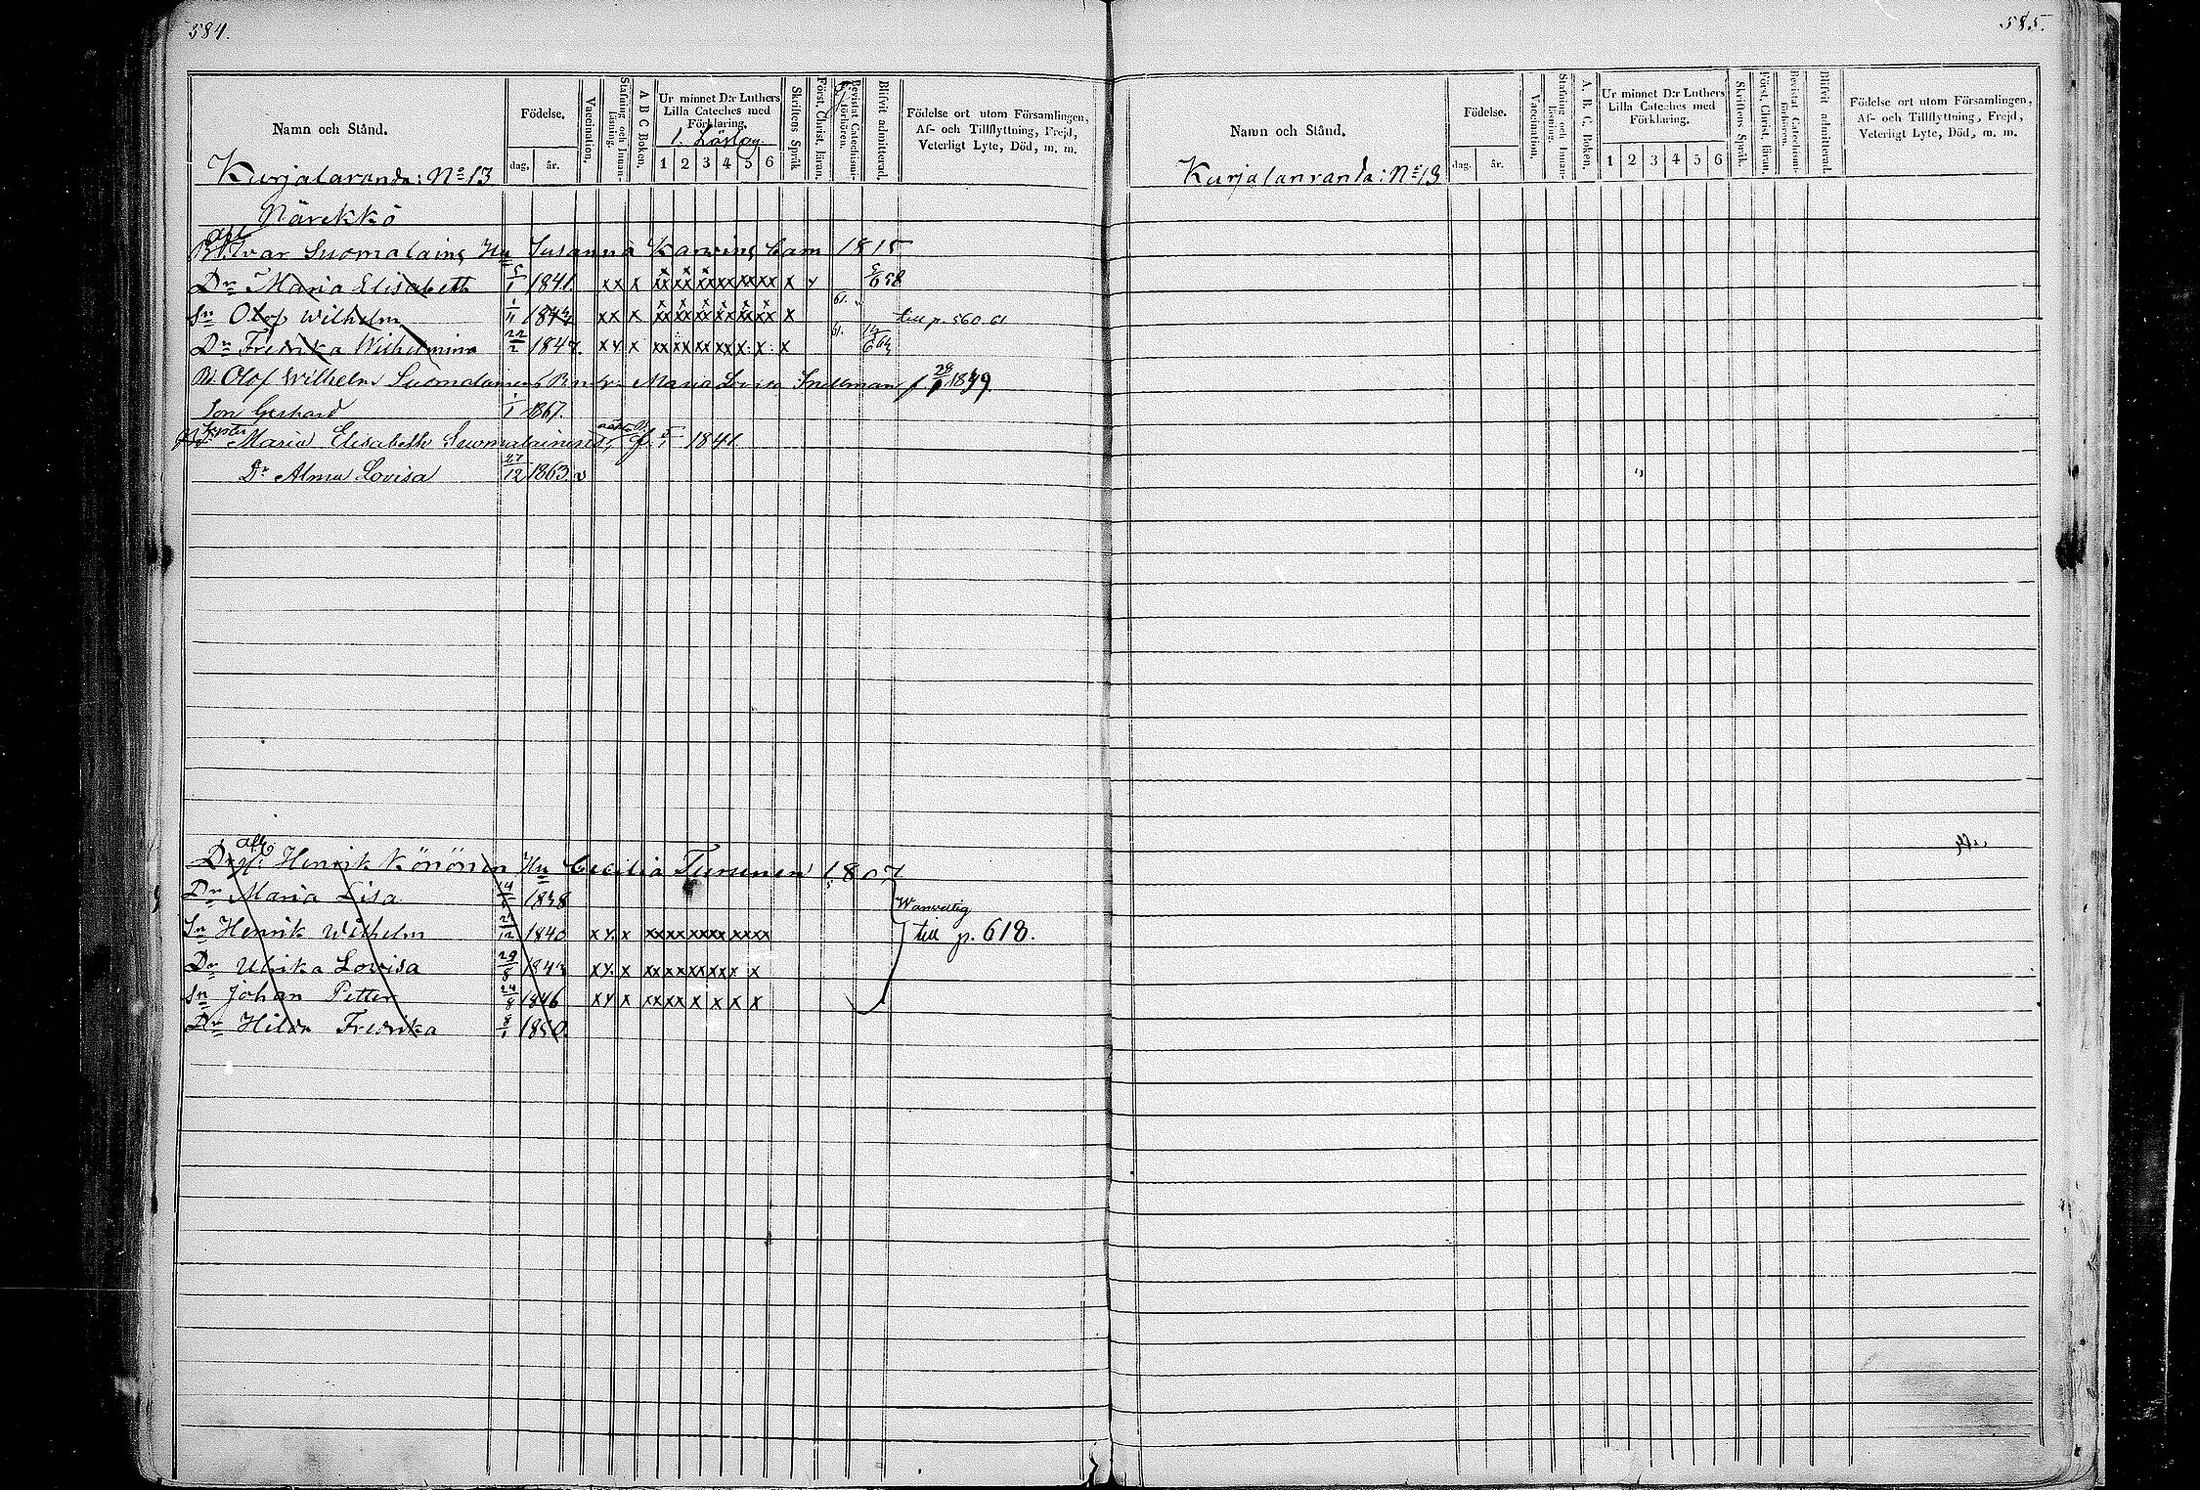 584.
Namn och Stånd.
Födelse.
dag. år.
Vaccination.
Stafning och Innanläsning.
A B C Boken.
Ur minnet D:r Luthers Lilla Cateches med Förklaring.
1. Läslag.
1 2 3 4 5 6
Skriftens Språk
Först. Christ. läran.
Bevistat Catechismiförhören.
Blifvit admitterad.
Födelse ort utom Församlingen,
Af- och Tillflyttning, Frejd,
Veterligt Lyte, Död, m. m.
Kurjalaranda: No 13
Närekkö
afl
Bd. Ivar Suomalains Hu Susanna Karvins Cam 1815
Dr Maria Elisabeth 5/1 1841. xx x xx xx xx xx xx xx x 5/6 58
Sn Olof Wilhelm 1/11 1844 xx x xx xx xx xx xx xx x 61. till p. 560. 61
Dr Fredrika Wilhelmina 22/2 1847. xx x xx xx xx xx x. x. x 61. 14/6 64
Bd. Olof Wilhelm Suomalainen Hu Maria Lovisa Snellman f. 28 1839
Son Gerhard 1/1 1867.
Maria Elisabeth Suomalainens f. 5/1 1841.
Dr Alma Lovisa 27/12 1863. v
afl
Henrik Könönen Hu Cecilia Turunen 1807
Dr Maria Lisa 1838
Sn Henrik Wilhelm 1840 xx x xx xx xx xx xx xx
Dr Ulrika Lovisa 29/8 1843 xx x xx xx xx xx x x
Sn Johan Petter 24/8 1846 xx x xx xx x x x x
Dr Hilda Fredrika 8/1 1850.
till p. 618.
585.
Namn och Stånd.
Födelse.
dag. år.
Vaccination.
Stafning och Innanläsning.
A. B. C. Boken.
Ur minnet D:r Luthers
Lilla Cateches med
Förklaring.
1 2 3 4 5 6
Skriftens Språk.
Först. Christ. läran.
Bevistat Catechismiförhören.
Blifvit admitterad.
Födelse ort utom Församlingen,
Af- och Tillflyttning, Frejd,
Veterligt Lyte, Död, m. m.
Kurjalanranda: No 13